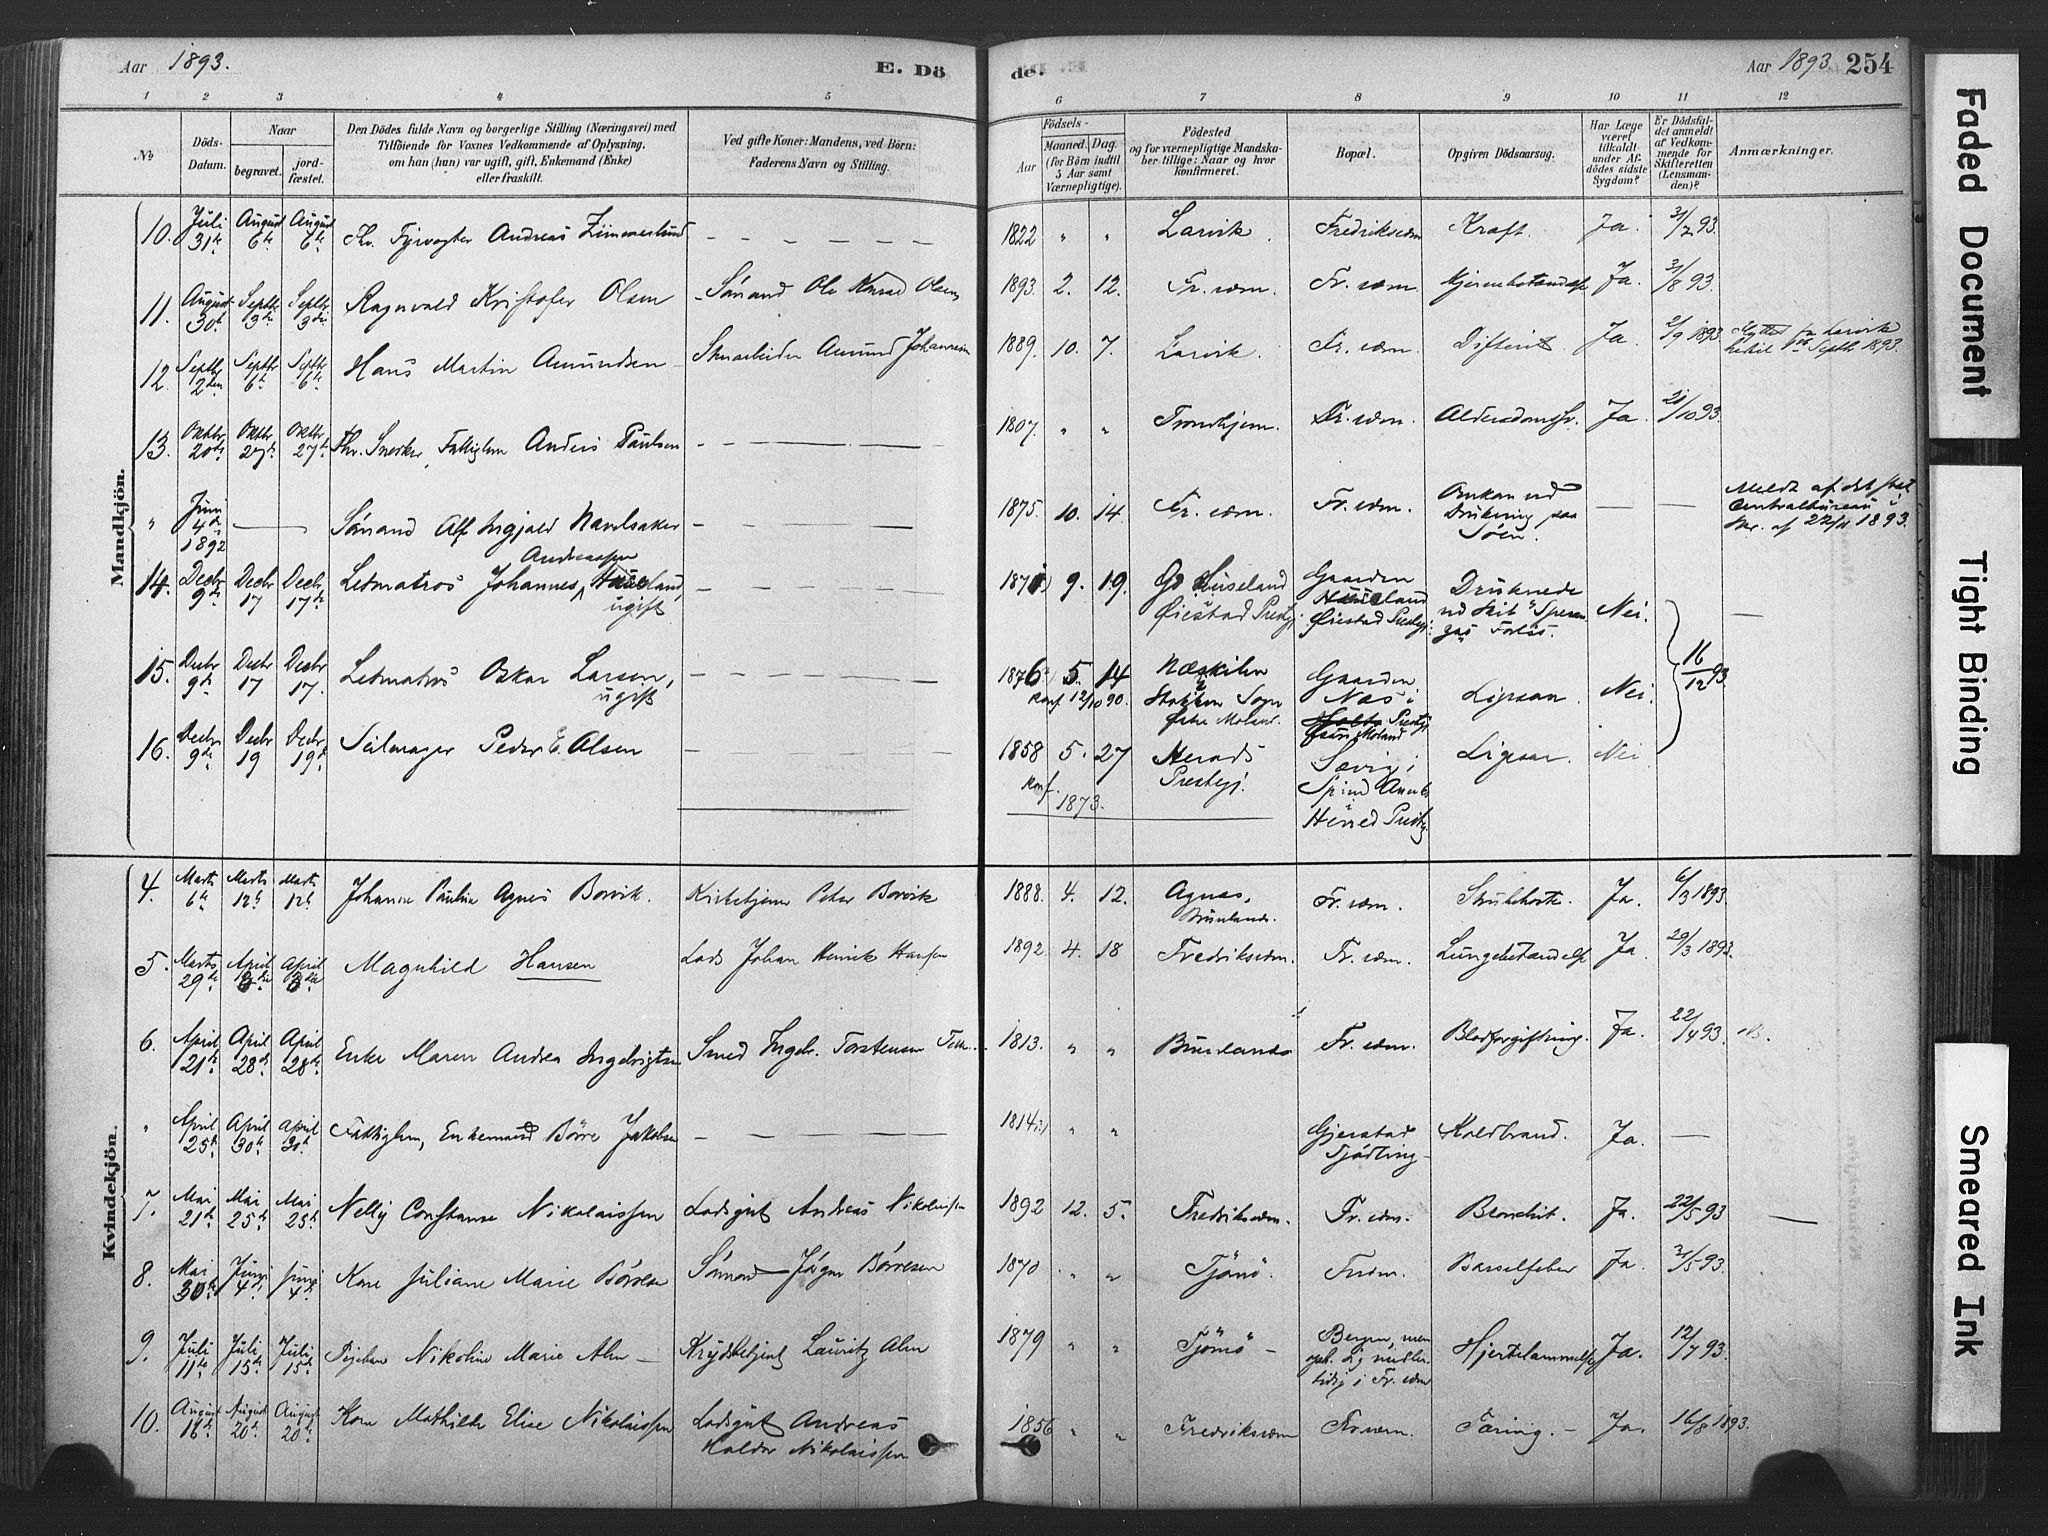 Aar 1893. E. Dö
de. Aar 1893. 254
1 2 3 4 5 6 7 8 9 10 11 12
No
Döds-Datum.
Naar
begravet. jordfæstet.
Den Dödes fulde Navn og borgerlige Stilling (Næringsvei) med
Tilföiende for Voxnes Vedkommende af Oplysning,
om han (hun) var ugift, gift, Enkemand (Enke)
eller fraskilt.
Ved gifte Koner: Mandens, ved Börn:
Faderens Navn og Stilling.
Födsels-
Aar Maaned. Dag.
(for Börn indtil
5 Aar samt
Værnepligtige).
Födested
og for værnepligtige Mandska-
ber tillige: Naar og hvor
konfirmeret.
Bopæl.
Opgiven Dödsaarsag.
Har Læge
været
tilkaldt
under Af-
dödes sidste
Sygdom?
Er Dödsfal-
det anmeldt
af Vedkom-
mende for
Skifteretten
(Lensman-
den)?
Anmærkninger.
Mandkjön.
10. Juli 31te August 6te August 6te Fyrvogter Andreas Zimmerlund — 1822 " " Larvik. Fredriksværn Kræft. Ja. 31/7 93.
11. August 30te Septbr 3die Septbr 3die Ragnvald Kristofer Olsen Sömand Ole Olsen 1893. 2. 12. Fr. værn. Fr. værn. Hjernebetændelse Ja 31/8 93.
12. Septbr 2den Septbr 6te Septbr 6te Hans Martin Amundsen Amund Johannesen 1889. 10. 7. Larvik. Fr. værn. Difterit Ja. 2/9 1893 Flyttet fra Larvik hertil Septb 1893.
13. Oktbr 20de Oktbr 27de Oktbr 27de Snedker, Fattiglem Anders Paulsen — 1807. " " Trondhjem. Fr. værn. Ja. 21/10 93.
" Juni 4de 1892 — Sömand Alf Ingjald Navelsaker — 1875. 10. 14 Fr. værn. Fr. værn. Omkom ved Drukning paa Söen. — — Meldt af det stat. Centralbureau i Skr. af 22/11 1893.
14. Decbr 9de Decbr 17 Decbr 17de Letmatros Johannes Andreassen ugift — 9. 19. Gd Huseland Øiestad Prestgj. Gaarden Øiestad Prestgj. Druknede ved Skib "Speranzas" Forlis. Nei. —
15. Decbr 9de Decbr 17 Decbr 17. Letmatros Oskar Larsen, ugift — 1876 5. 14 Konf 12/10 90. Næskilen Stokken Sogn Østre Moland. Gaarden Næs i Prestgj. Ligesaa. Nei. 16/12 93
16. Decbr 9de Decbr 19 Decbr 19de Seilmager Peder E. Olsen — 1858 5. 27 Konf. 1873. Herads Prestegj. Sævig i Spind Annex i Herred Prestgj. Ligesaa. Nei
Kvindekjön.
4. Marts 6te Marts 12te Marts 12te Johanne Pauline Agnes Borvik. Kirketjener Peter Borvik 1888. 4. 12. Agnes, Brunlanes. Fr. værn. Strubehoste. Ja. 6/3 1893.
5. Marts 29de April 3die April 3die Magnhild Hansen Lods Johan Henrik Hansen 1892 4. 18 Fredriksværn. Fr. værn. Lungebetændelse Ja. 29/3 1893.
6. April 21de April 28de April 28de Enke Maren Andrea Ingebrigtsen Smed Ingebr. Torstensen 1813. " " Brunlanes Fr. værn. Blodforgiftning. Ja. 22/4 93.
" April 25de April 30te April 30te Fattiglem, Enkemand Börre Jakobsen — 1814 " " Gjerstad Tjödling Koldbrand. Ja. —
7. Mai 21de Mai 25de Mai 25de Nelly Constanse Nikolaissen Lodsgut Andreas Nikolaissen 1892 12. 5. Fredriksværn. Fr. værn. Bronchit. Ja. 22/5 93 —
8. Mai 30te Juni 4de Juni 4de Kone Juliane Marie Börresen Sömand Jörgen Börresen 1870 " " Tjömö. Frværn. Barselfeber Ja. 31/5 93.
9. Juli 11te Juli 15de Juli 15de Pigebarn Nikoline Marie Alm — Lauritz Alm 1879 " " Tjömö — Bergen, men midlertidig i Fr. værn Ja. 12/7 93.
10. August 16de August 20de August 20de Kone Mathilde Elise Nikolaissen Lodsgut Andreas Haldor Nikolaissen 1856 " " Fredriksværn Frværn. Tæring. — Ja. 16/8 1893.
Faded Document
Tight Binding
Smeared Ink